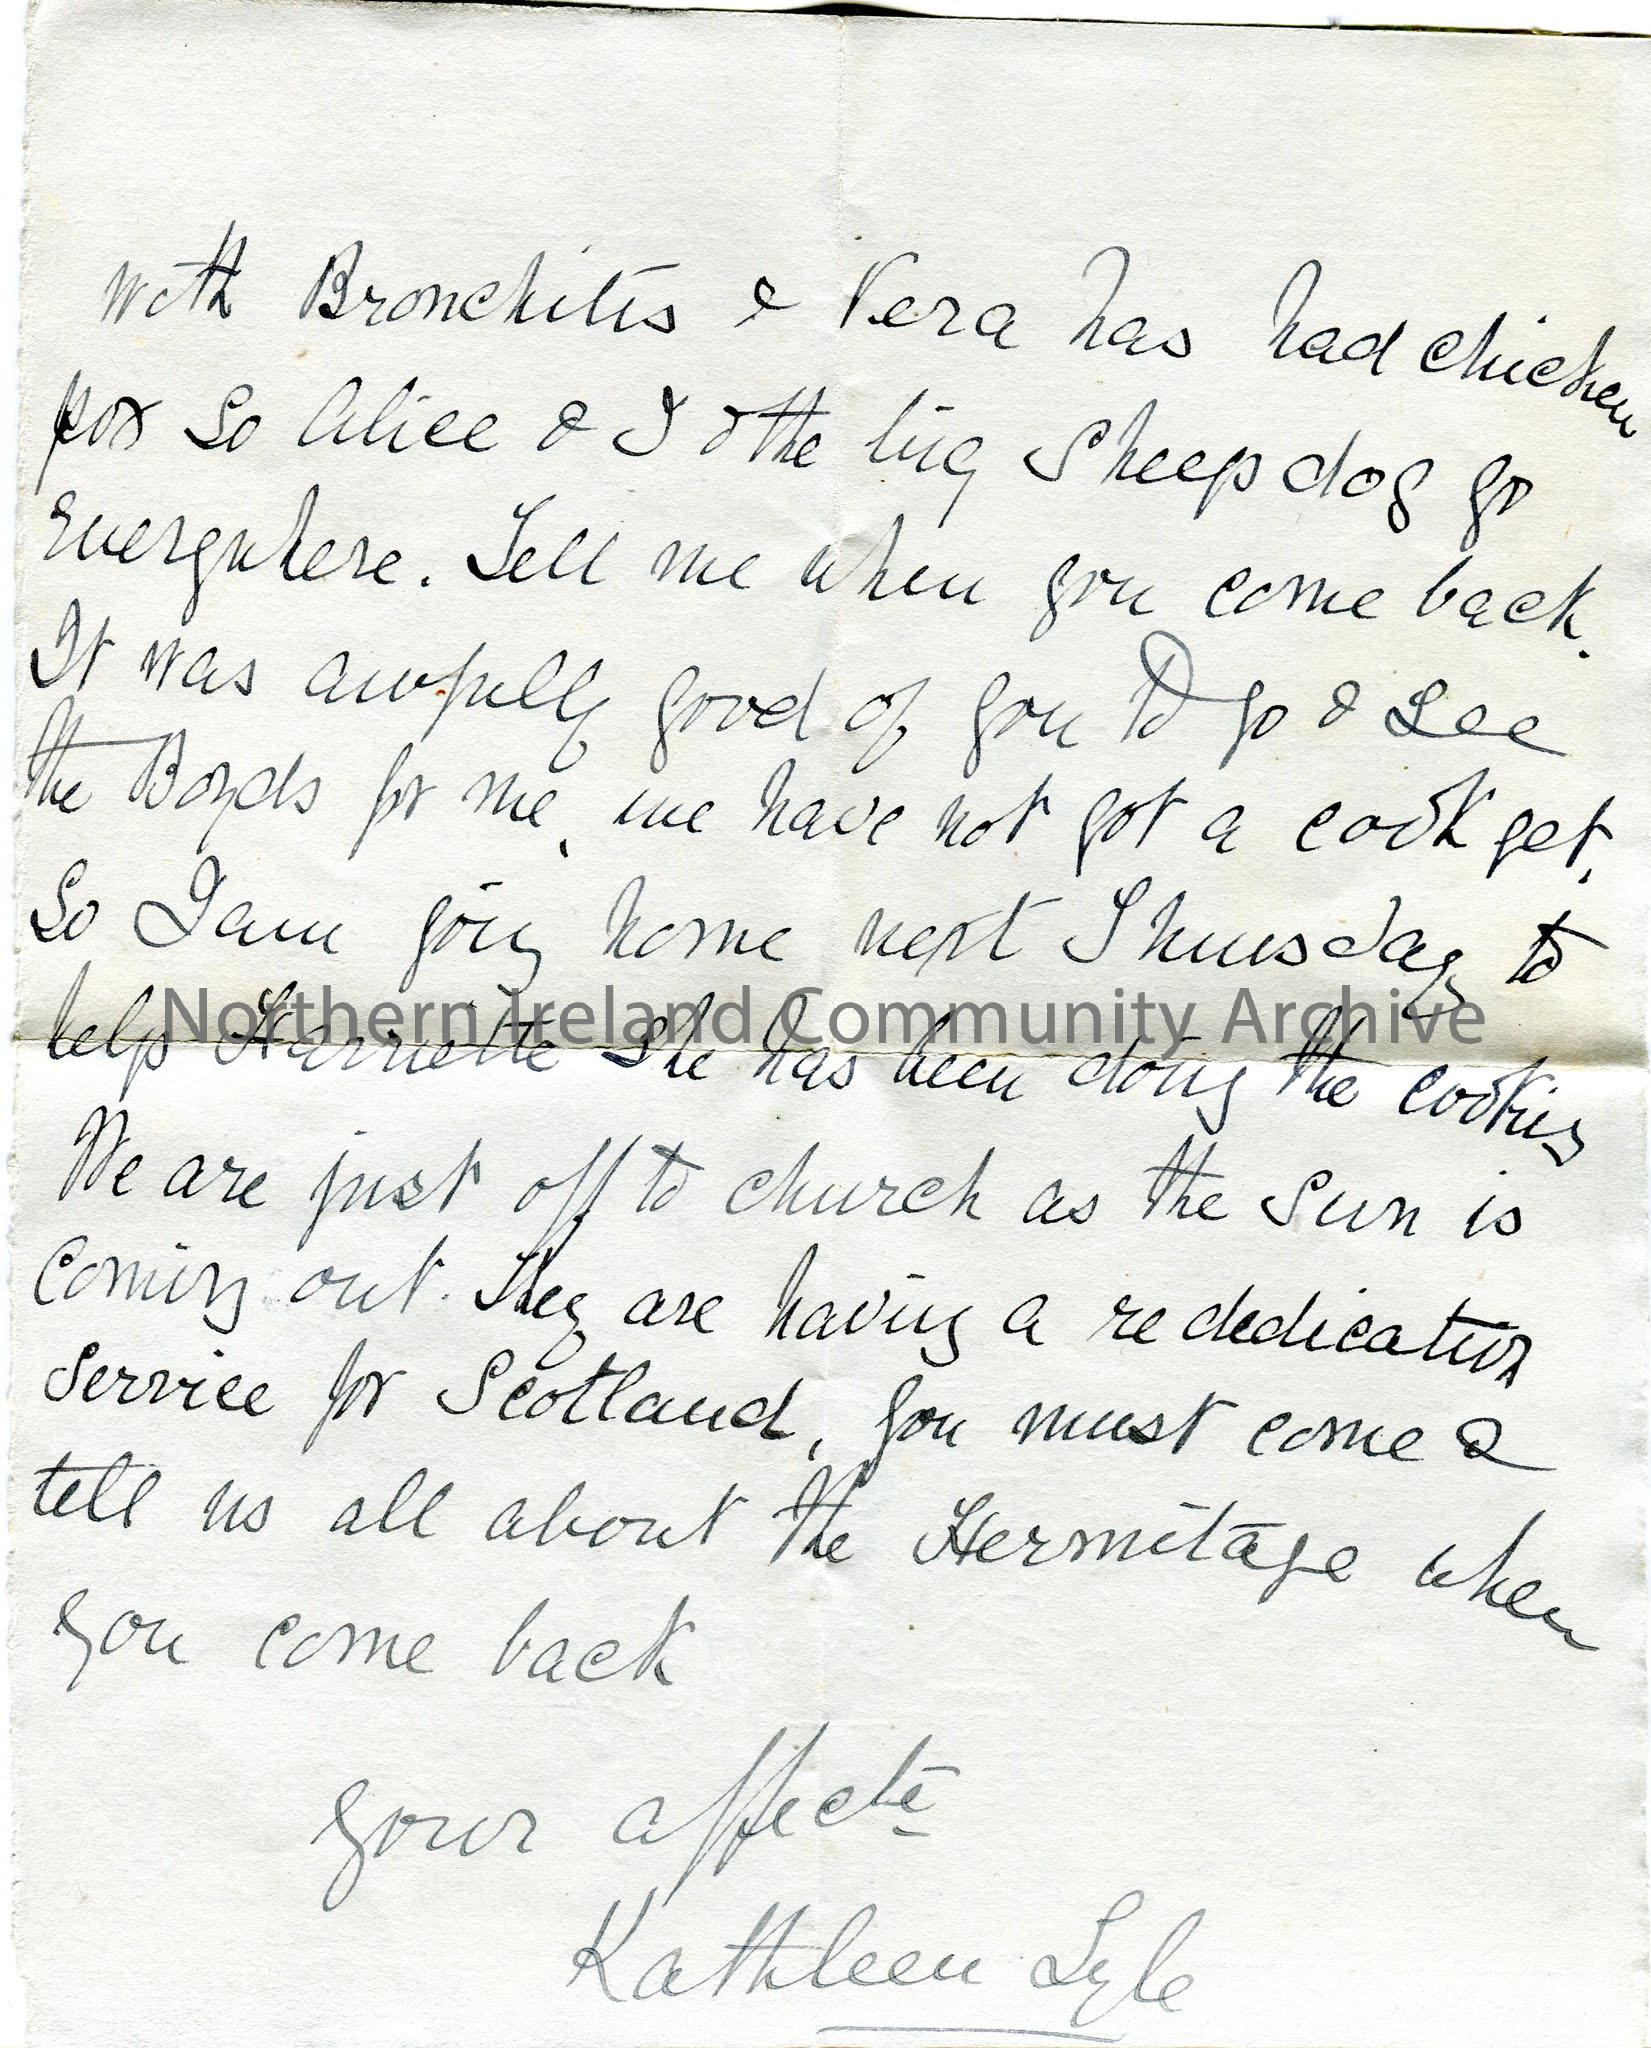 with Bronchitis & Vera has had chicken
pox So Alice & I & the big Sheep dog go
Everywhere. Tell me when you come back.
It was awfully good of you to go & See
the Boyds for me, we have not got a cook yet,
So I am going home next Thursday to
help Harriette She has been doing the cooking
We are just off to church as the Sun is
Coming out. They are having a rededication
Service for Scotland, you must come &
tell us all about the Hermitage when
you come back
your affecte
Kathleen Lyle
Northern Ireland Community Archive